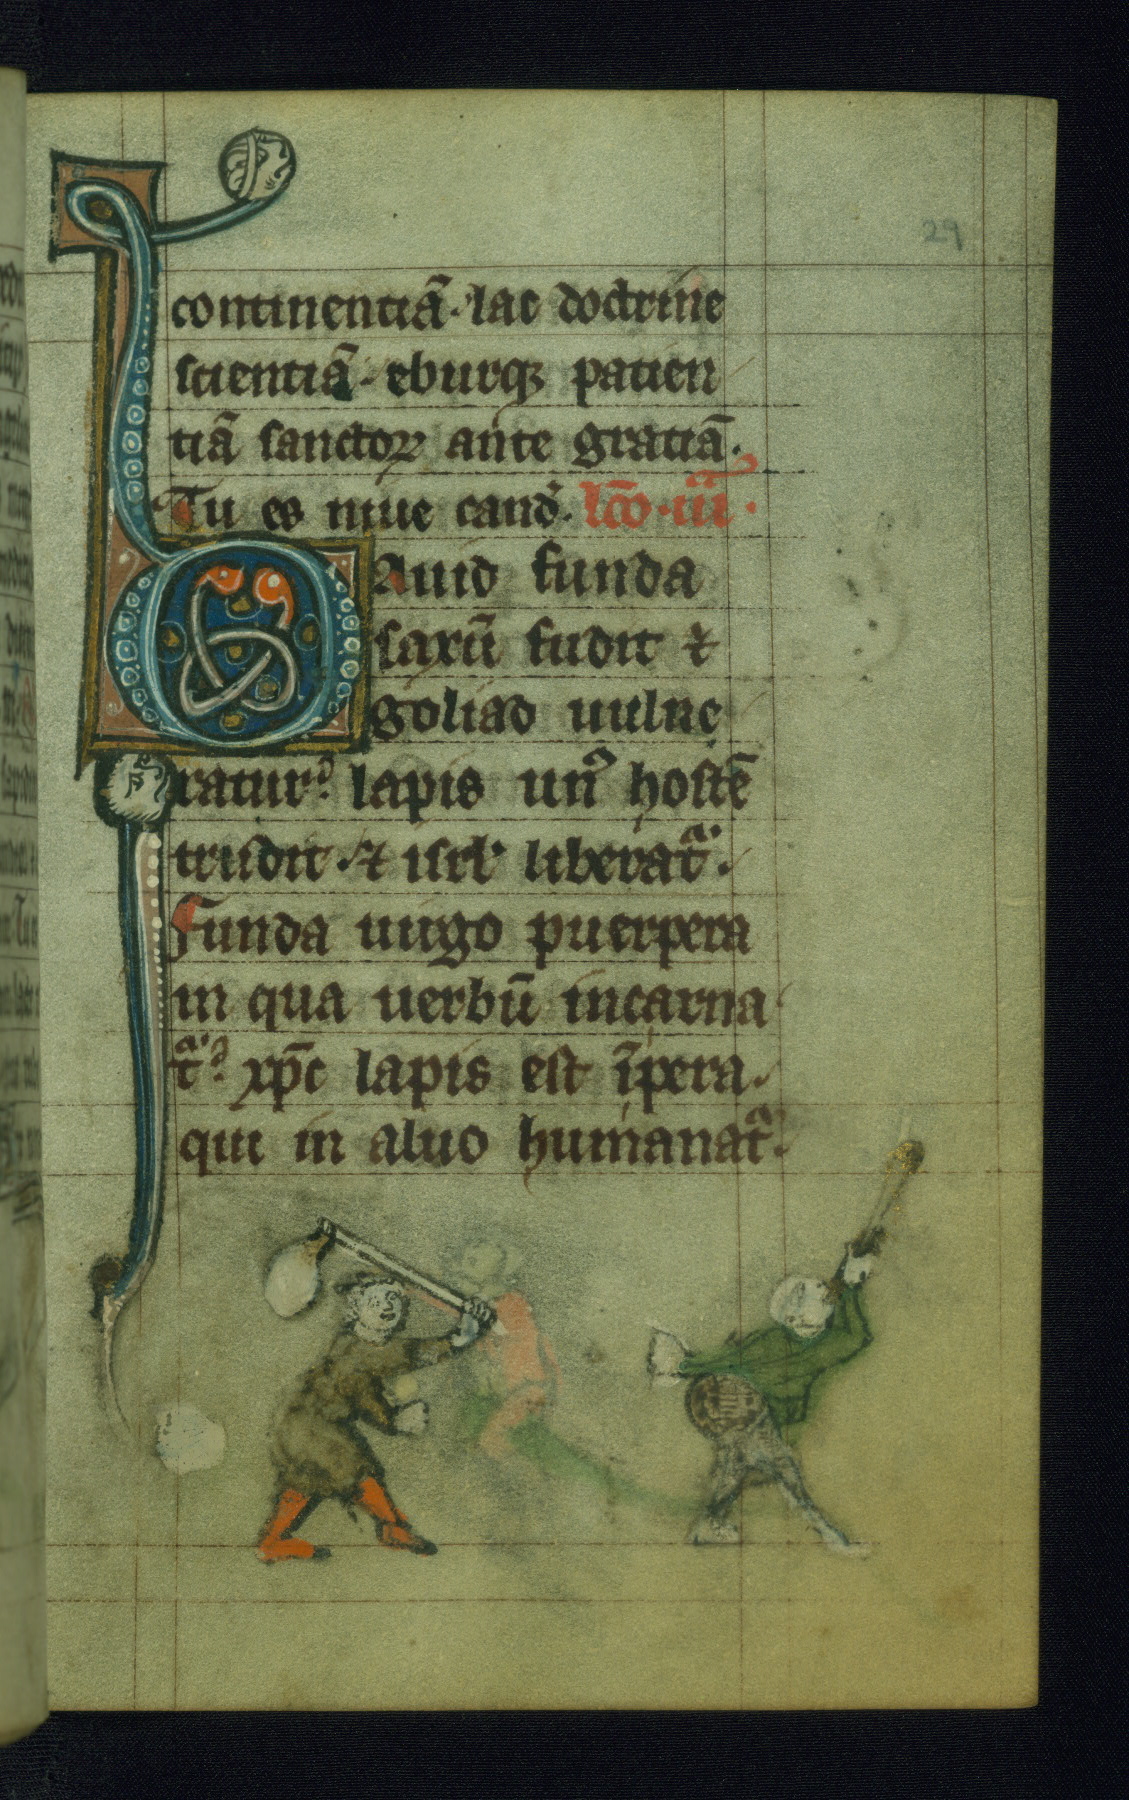 29
continentiã. lac doctrine
scientiã. eburqꝫ patien
tiã sanctoꝝ ante gratiã.
Tu es niue cand̾. lc̃o. iii.
Auid funda
saxũ fudit ⁊
goliad uulne
ratur. lapis un᾿ hostẽ
trudit. ⁊ isrl᾿ liberat᷑.
Funda uirgo puerpera
in qua uerbũ incarna
t᷑. xp̃c lapis est ĩpera.
qui in aluo humanat᷑.